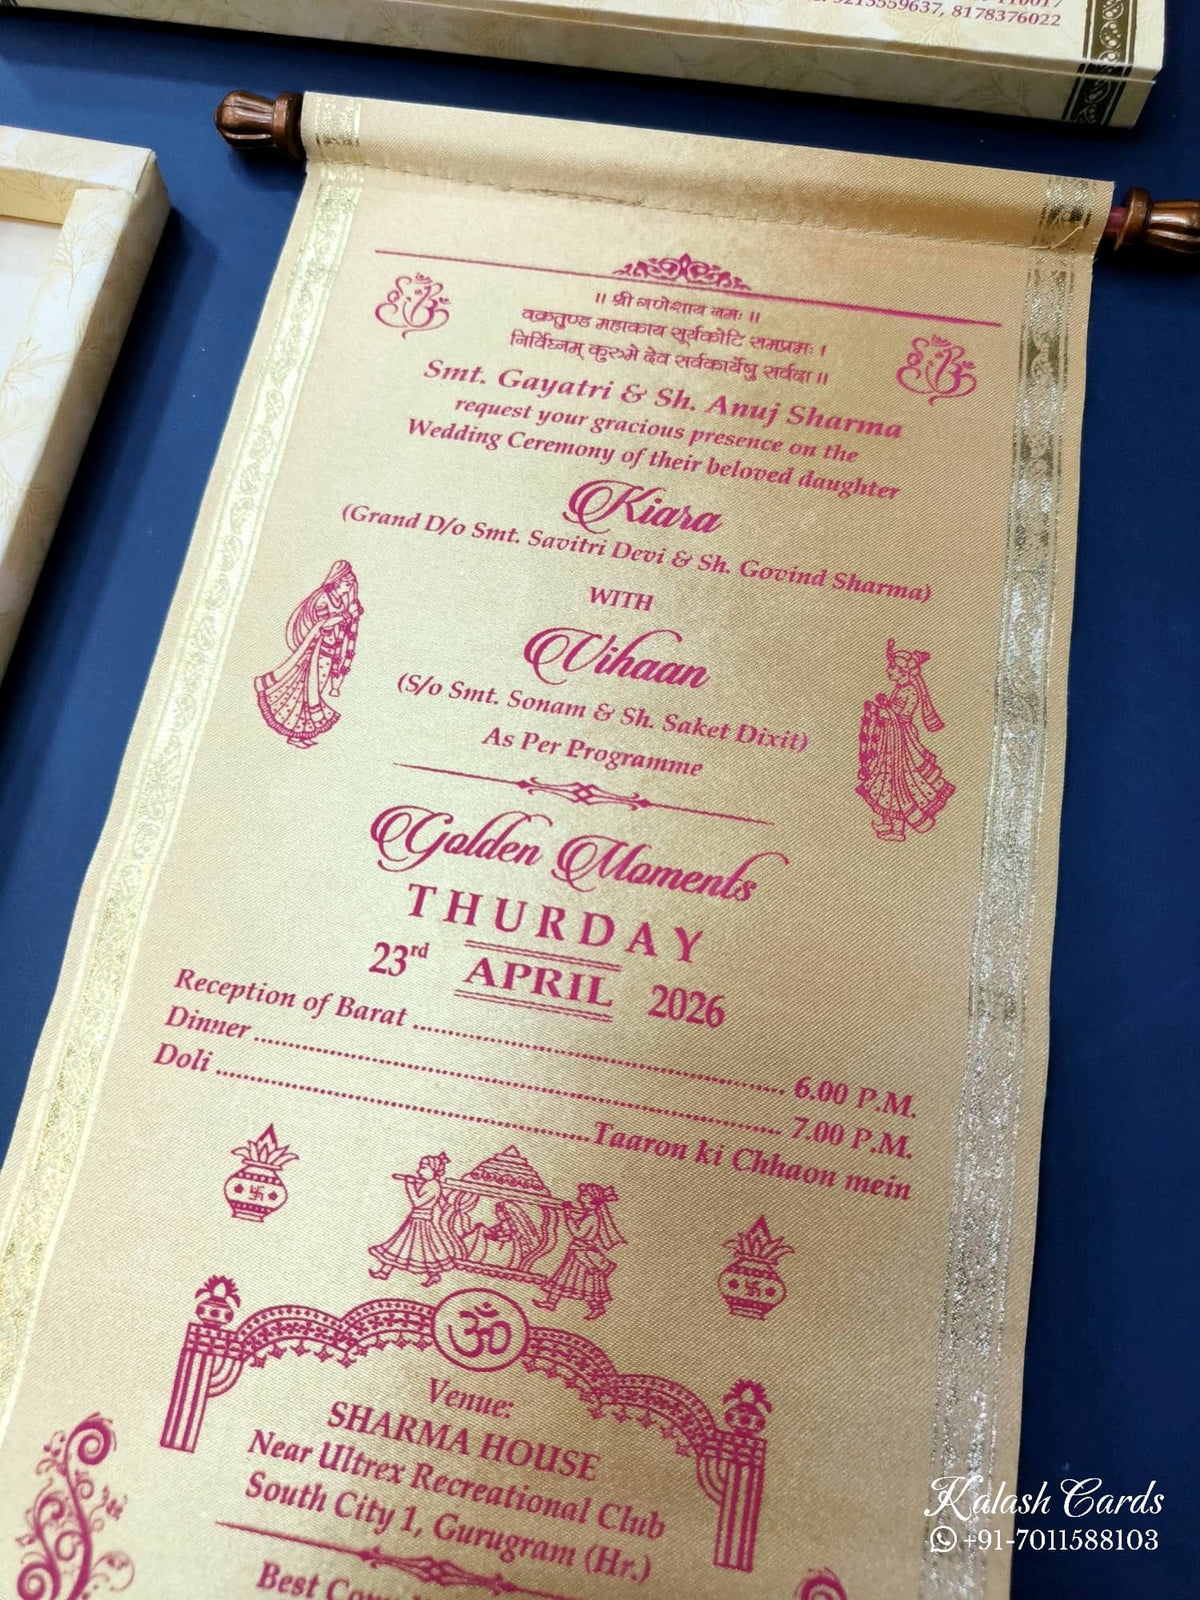 9215559637, 8178376022
॥ श्री गणेशाय नमः ॥
वक्रतुण्ड महाकाय सूर्यकोटि समप्रभः।
निर्विघ्नम् कुरुमे देव सर्वकार्येषु सर्वदा॥
Smt. Gayatri & Sh. Anuj Sharma
request your gracious presence on the
Wedding Ceremony of their beloved daughter
Kiara
(Grand D/o Smt. Savitri Devi & Sh. Govind Sharma)
WITH
Vihaan
(S/o Smt. Sonam & Sh. Saket Dixit)
As Per Programme
Golden Moments
THURDAY
23rd APRIL 2026
Reception of Barat ........ 6.00 P.M.
Dinner ........ 7.00 P.M.
Doli ........ Taaron ki Chhaon mein
ॐ
Venue:
SHARMA HOUSE
Near Ultrex Recreational Club
South City 1, Gurugram (Hr.)
Best
Kalash Cards
+91-7011588103